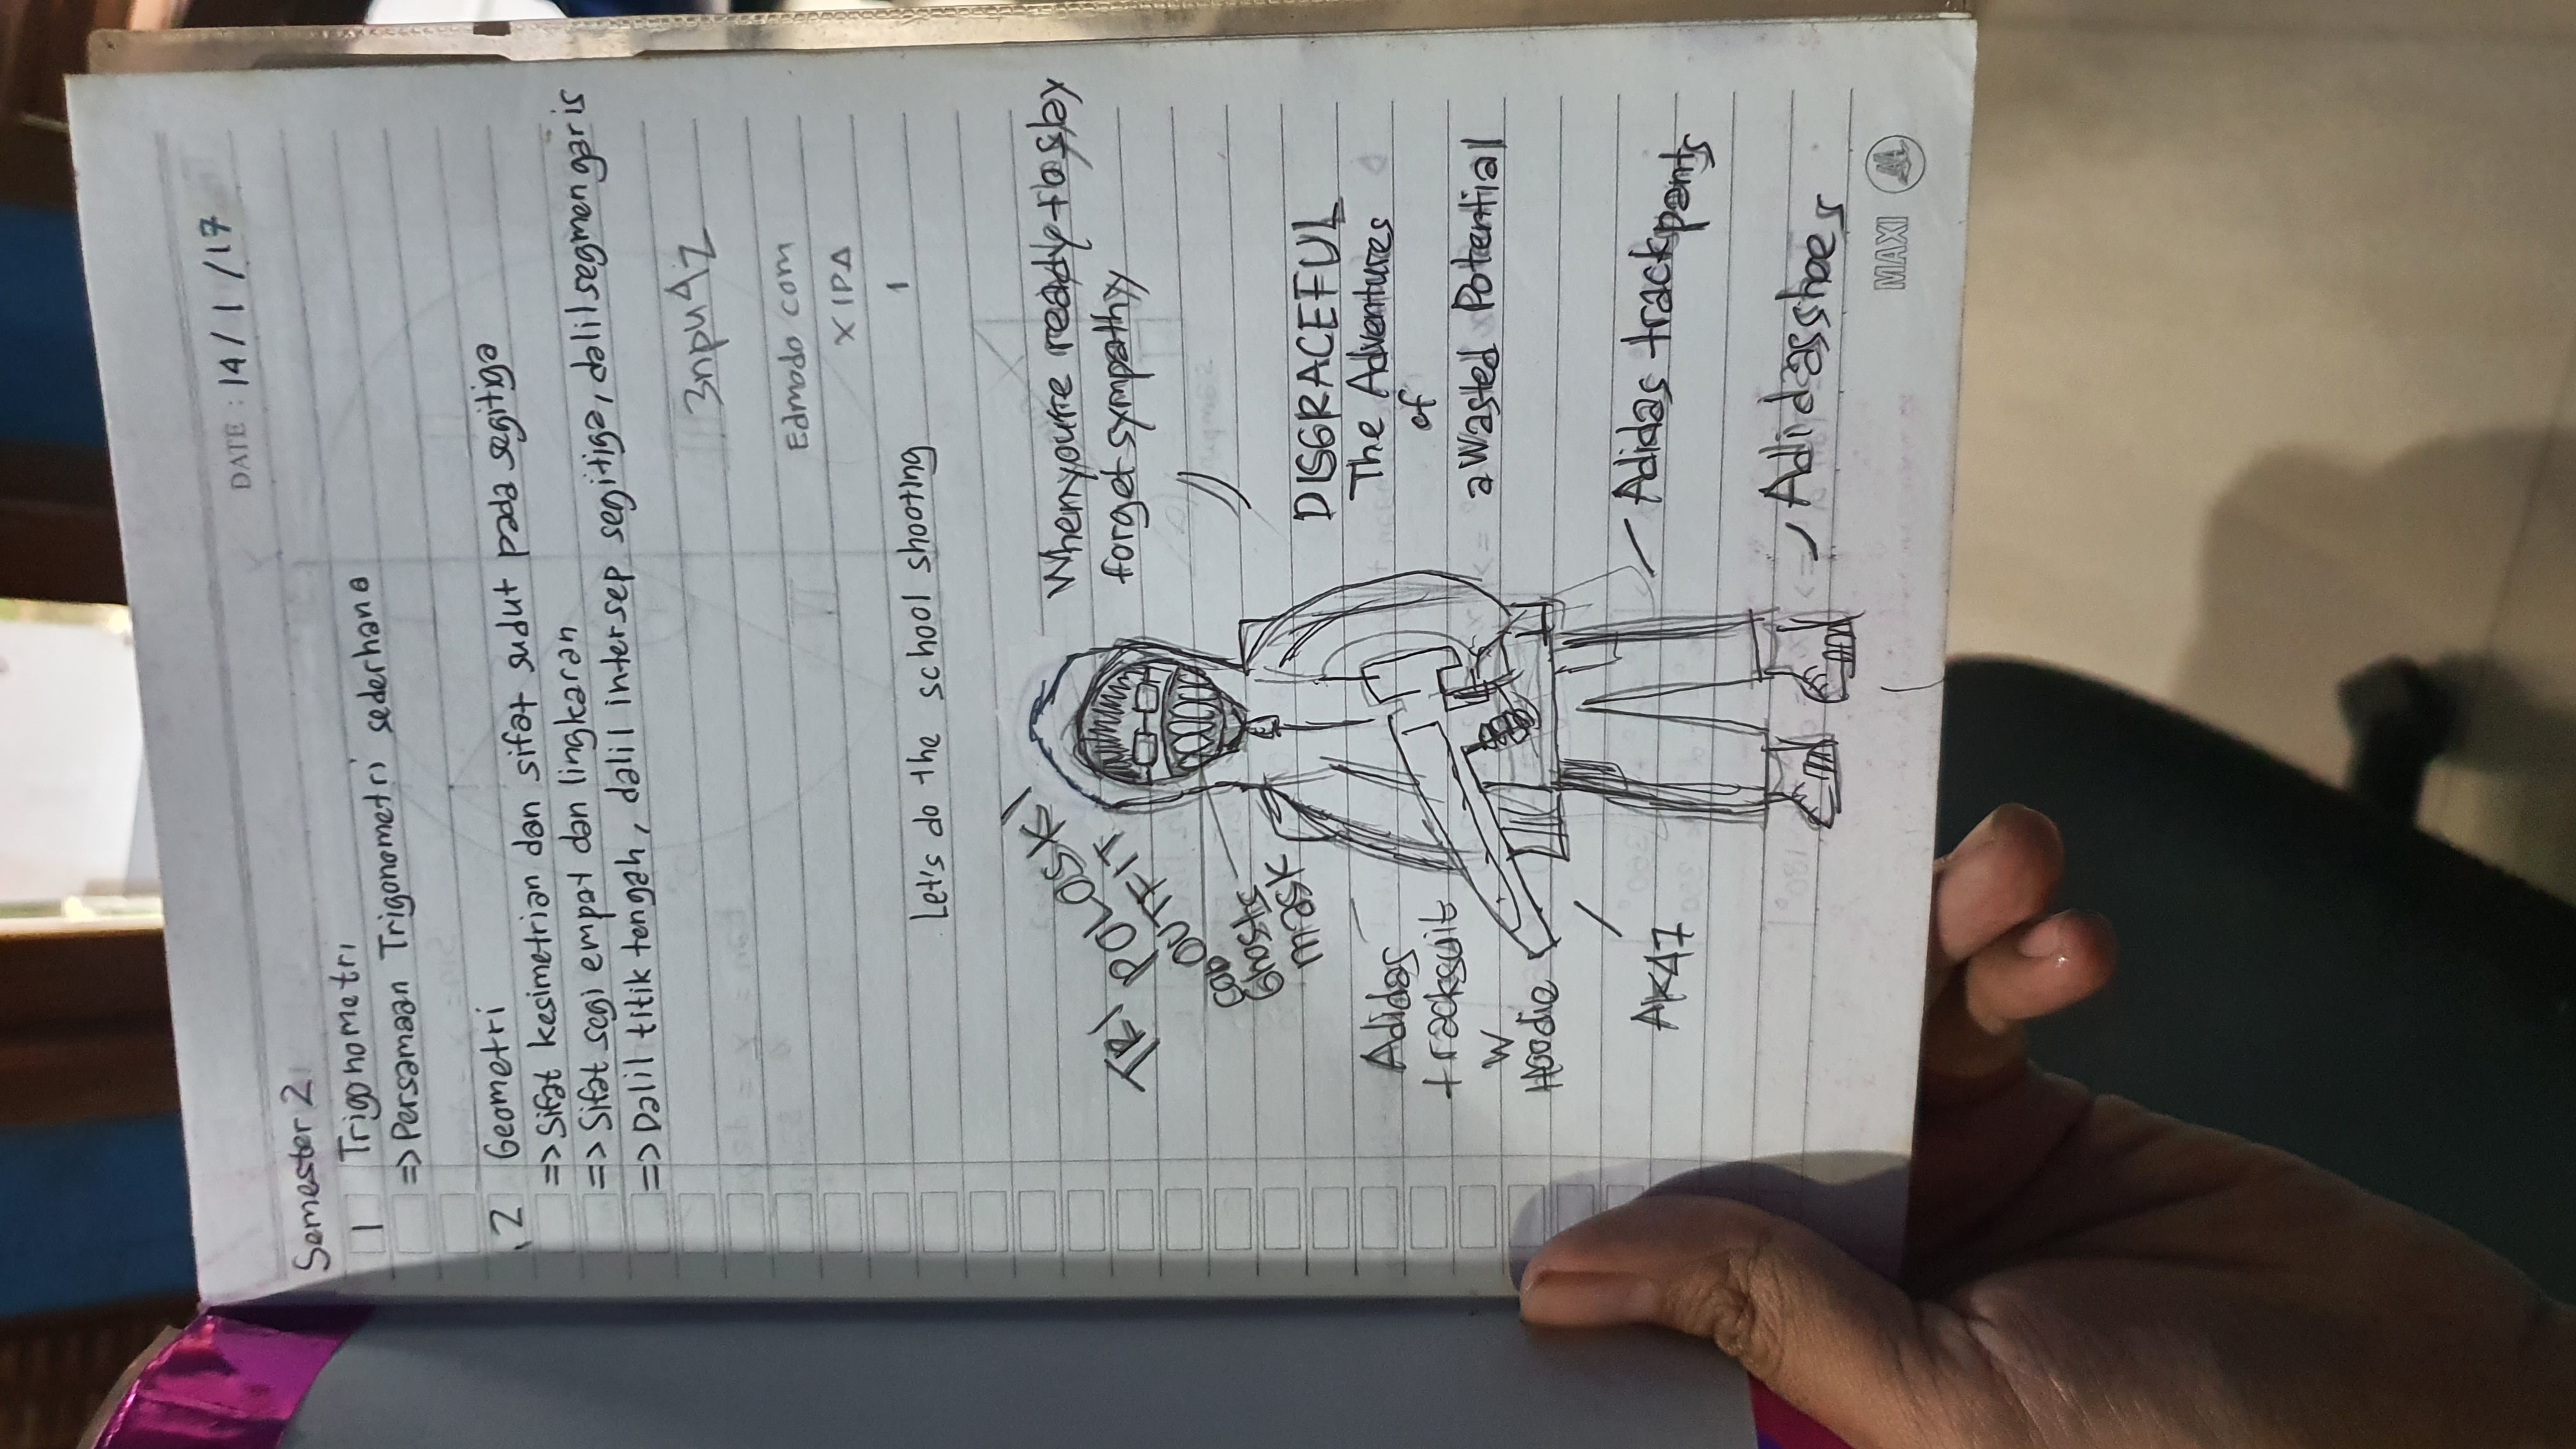 DATE : 14 / 1 / 17
Semester 2
1 Trigonometri
=> Persamaan Trigonometri sederhana
2 Geometri
=> Sifat kesimetrian dan sifat sudut pada segitiga
=> Sifat segi empat dan lingkaran
=> Dalil titik tengah, dalil intersep segitiga, dalil segmen garis
Edmodo com
X IPA
1
Let's do the school shooting
When you're ready to slay
forget sympathy
OUTFIT
COD
Ghosts
mask
DISGRACEFUL
The Adventures
of
a Wasted Potential
Adidas
tracksuit
W
Hoodie
AK47
Adidas track pants
Adidas shoes
MAXI